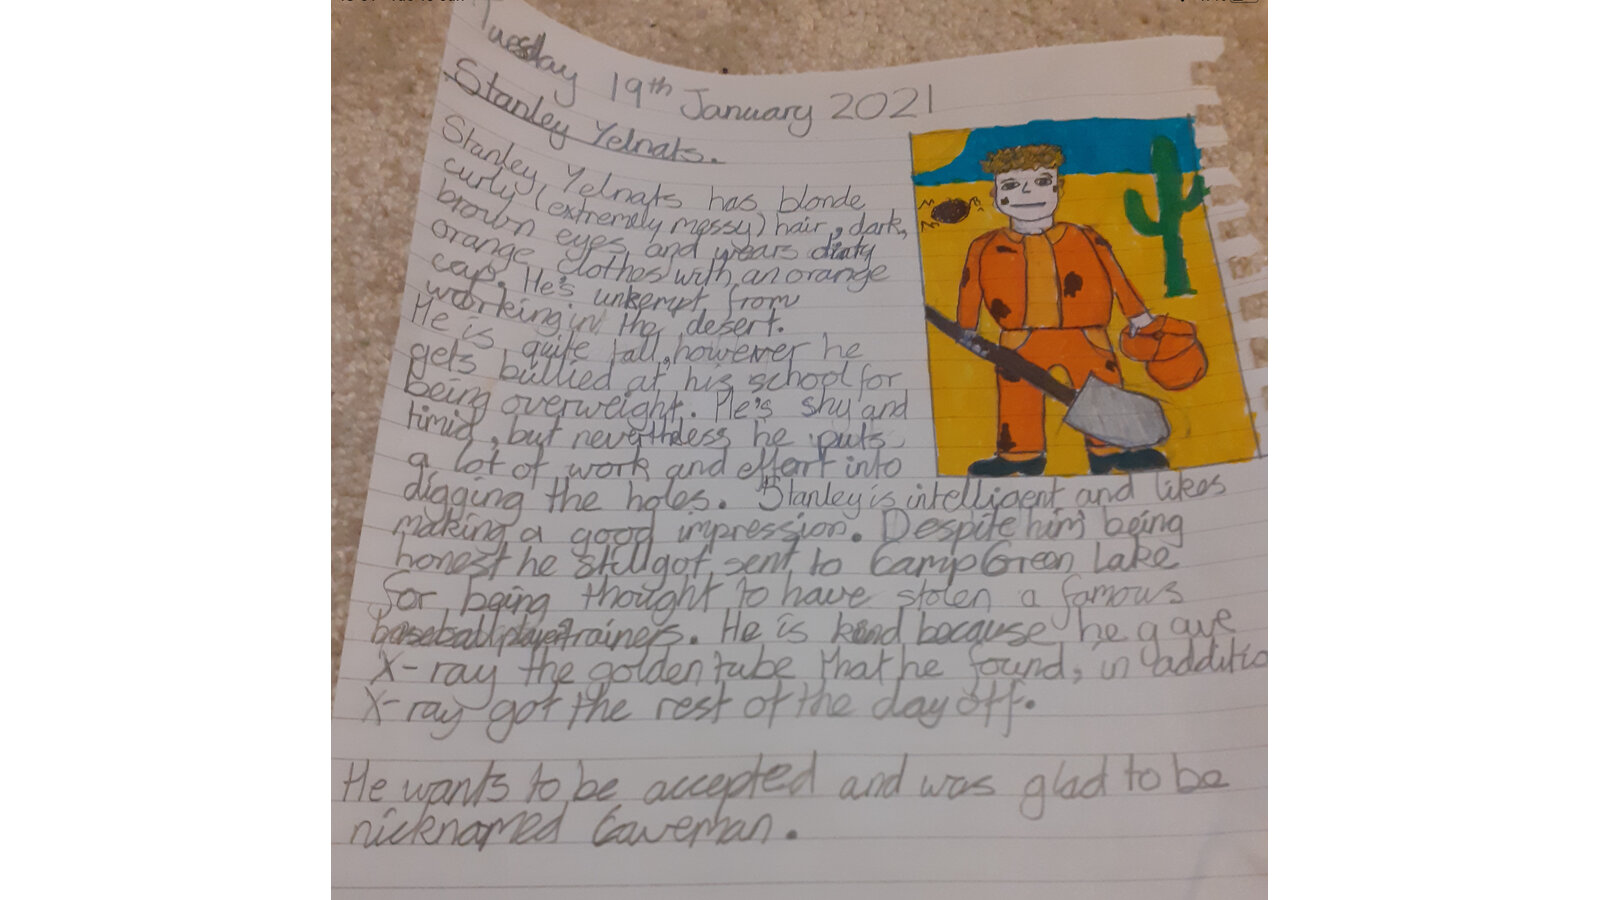 Tuesday 19th January 2021
Stanley Yelnats.
Stanley Yelnats has blonde
curly (extremely messy) hair, dark,
brown eyes and wears dirty
orange clothes with an orange
cap. He's unkempt from
working in the desert.
He is quite tall, however he
gets bullied at his school for
being overweight. He's shy and
timid, but nevertheless he puts
a lot of work and effort into
digging the holes. Stanley is intelligent and likes
making a good impression. Despite him being
honest he still got sent to Camp Green Lake
for being thought to have stolen a famous
baseball player trainers. He is kind because he gave
X-ray the golden tube that he found, in additio
X-ray got the rest of the day off.
He wants to be accepted and was glad to be
nicknamed Caveman.